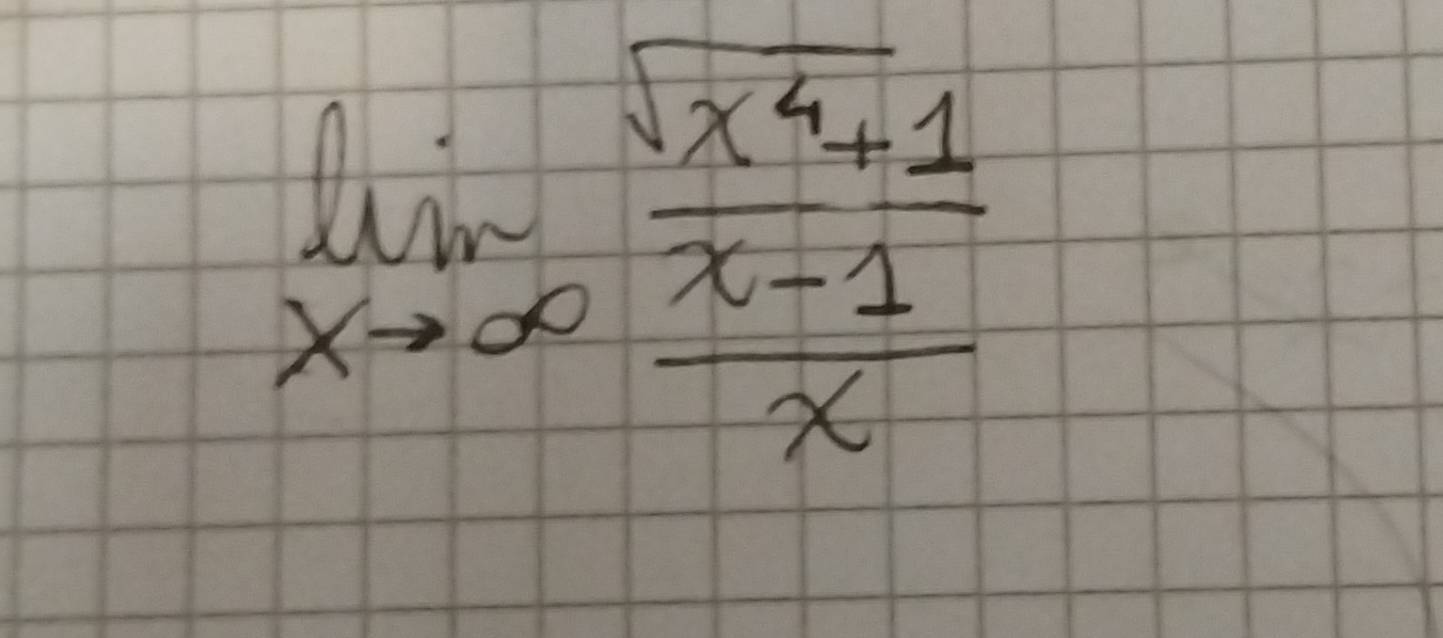 lim x→∞
√x⁴+1
x-1
x